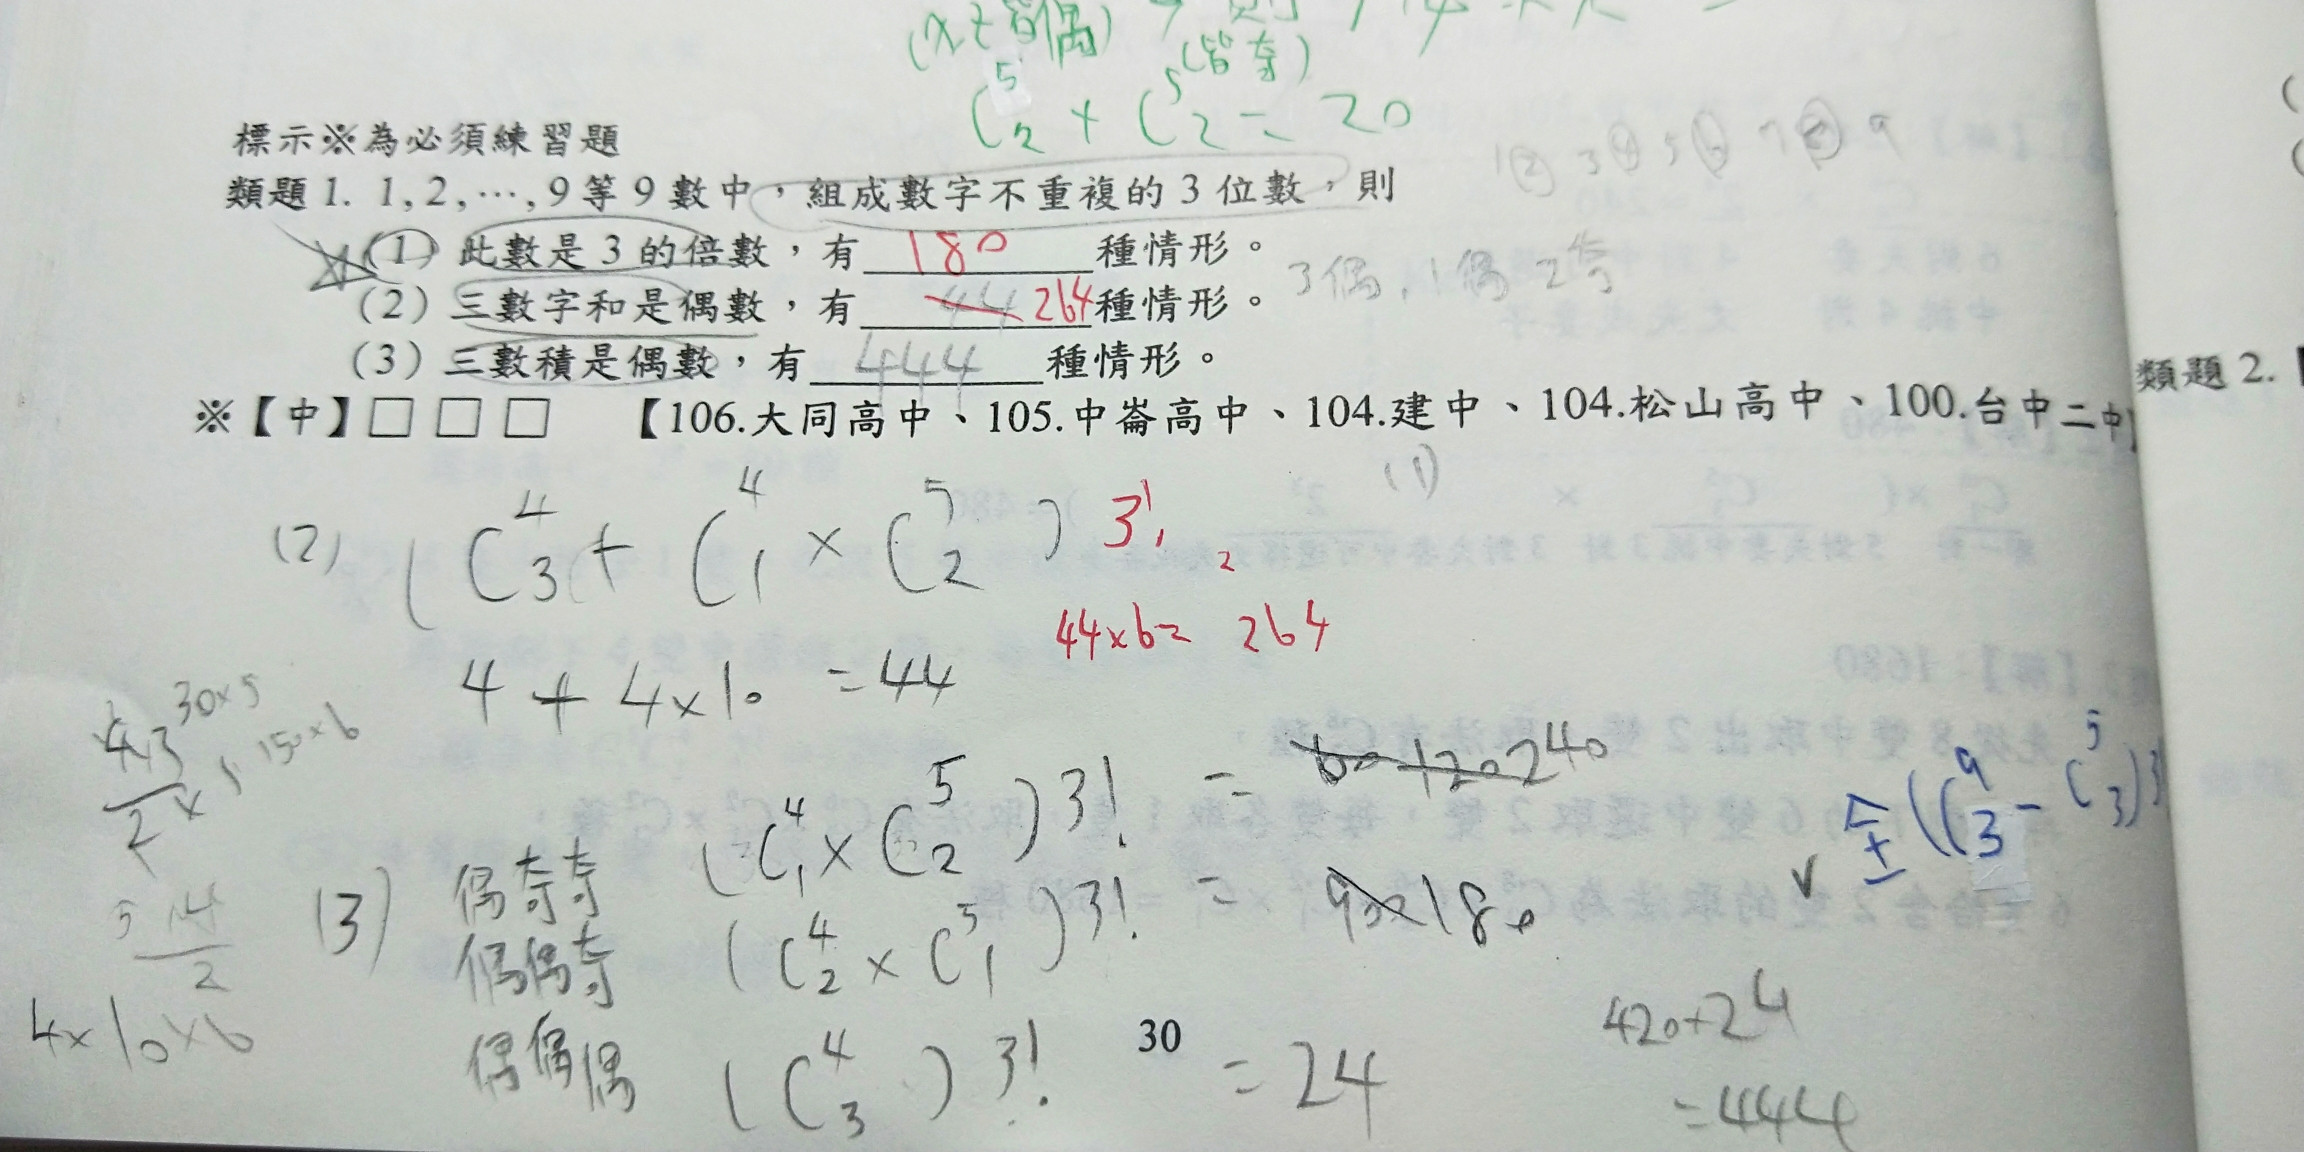 (
皆偶)
(皆奇)
C⁵₂ + C⁵₂ = 20
標示※為必須練習題
1 2 3 4 5 6 7 8 9
類題 1. 1, 2, …, 9 等 9 數中，組成數字不重複的 3 位數，則
(1) 此數是 3 的倍數，有 180 種情形。
3偶, 1偶 2奇
(2) 三數字和是偶數，有 44 264 種情形。
(3) 三數積是偶數，有 444 種情形。
類題 2.
※【中】□ □ □ 【106.大同高中、105.中崙高中、104.建中、104.松山高中、100.台中二中】
(1)
(2) ( C⁴₃ + C⁴₁ × C⁵₂ ) 3!
44×6= 264
4 + 4×10 = 44
30×5
150×6
4·3
2 × 5
偶奇奇 (C⁴₁ × C⁵₂) 3! = 60 120 240
全 (C⁹₃ - C⁵₃)3!
(3)
偶偶奇 (C⁴₂ × C⁵₁) 3! = 90 180
5·4
2
4×10×6
偶偶偶 (C⁴₃) 3! = 24
30
420+24
=444